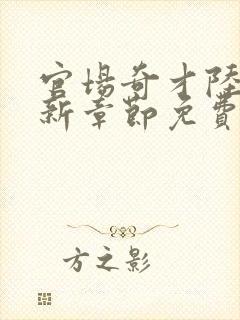 官场奇才陸
新章節免費
方之影